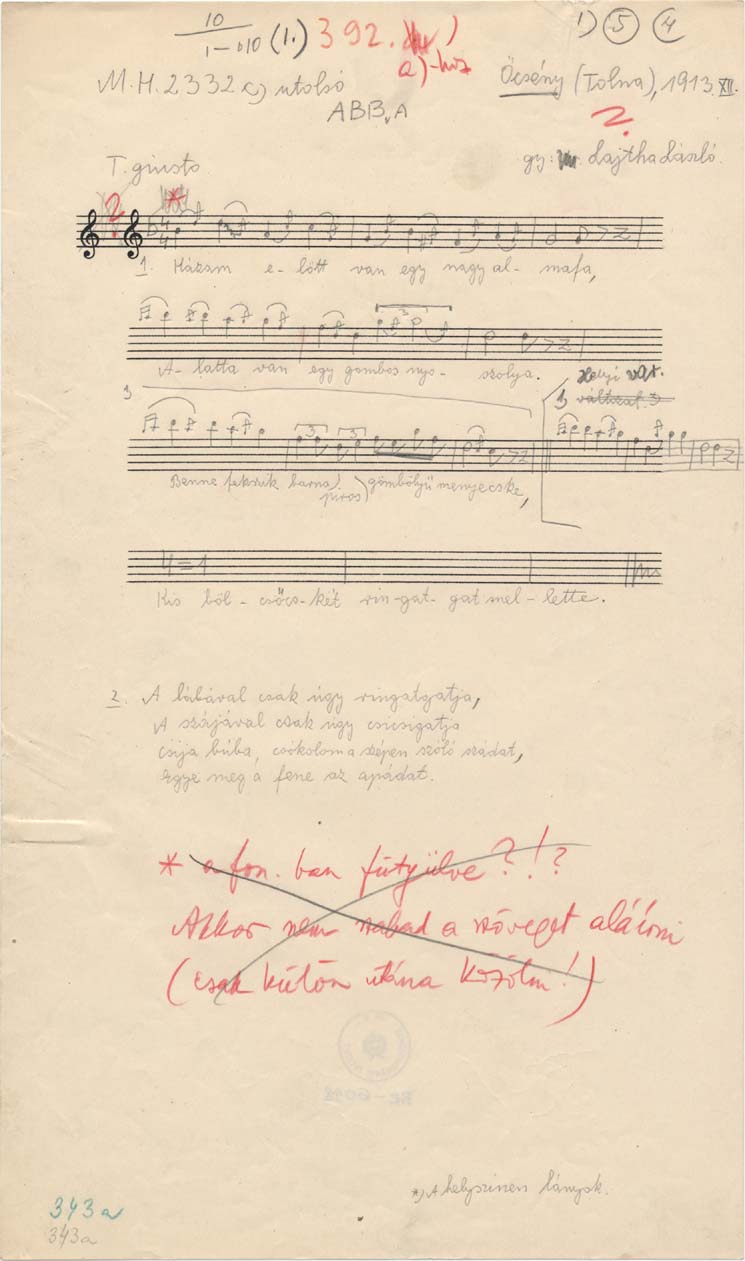 10
1-•10 (1.) 392.
a)-hoz
1) 5 4
M.H. 2332 c) utolsó
Őcsény (Tolna), 1913. XII.
ABBvA
2.
T. giusto
gy: Lajtha László.
2. *
4
4
1. Házam e-lőtt van egy nagy al-mafa,
3
A-latta van egy gombos nyo-szolya.
3
Helyi vált.
3 3
Benne fekszik barna gömbölyű menyecske,
piros
4=1
Kis böl-csőcs-két rin-gat-gat mel-lette.
2. A lábával csak úgy ringatgatja,
A szájával csak úgy csicsigatja
csija búba, csókolom a szépen szóló szádat,
egye meg a fene az apádat.
* a fon. ban fütyülve?!?
Akkor nem szabad a szöveget aláírni
(csak külön utána közölni!)
*) A helyszínen lányok.
343a
343a